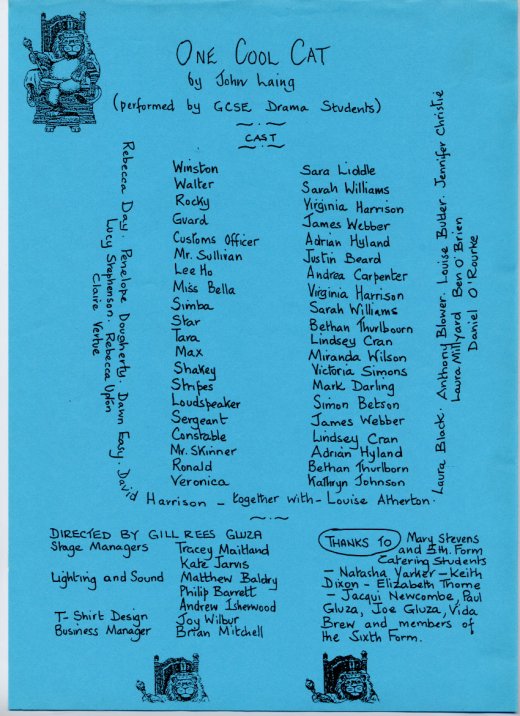 ONE COOL CAT
by John Laing
(performed by GCSE Drama Students)
CAST
Winston Sara Liddle
Walter Sarah Williams
Rocky Virginia Harrison
Guard James Webber
Customs Officer Adrian Hyland
Mr. Sullivan Justin Beard
Lee Ho Andrea Carpenter
Miss Bella Virginia Harrison
Simba Sarah Williams
Star Bethan Thurlbourn
Tara Lindsey Cran
Max Miranda Wilson
Shakey Victoria Simons
Stripes Mark Darling
Loudspeaker Simon Betson
Sergeant James Webber
Constable Lindsey Cran
Mr. Skinner Adrian Hyland
Ronald Bethan Thurlborn
Veronica Kathryn Johnson
Rebecca Day. Penelope Dougherty. Dawn Easy. David Harrison - together with - Louise Atherton. Laura Black. Anthony Blower. Louise Butler. Jennifer Christie
Lucy Stephenson. Rebecca Upton
Claire Vertue
Laura Millyard Ben O'Brien
Daniel O'Rourke
DIRECTED BY GILL REES GLUZA
Stage Managers Tracey Maitland
Kate Jarvis
Lighting and Sound Matthew Baldry
Philip Barrett
Andrew Isherwood
T-Shirt Design Joy Wilbur
Business Manager Brian Mitchell
THANKS TO Mary Stevens
and 5th. Form
Catering Students
- Natasha Yarker - Keith
Dixon - Elizabeth Thorne
- Jacqui Newcombe, Paul
Gluza, Joe Gluza, Vida
Brew and members of
the Sixth Form.